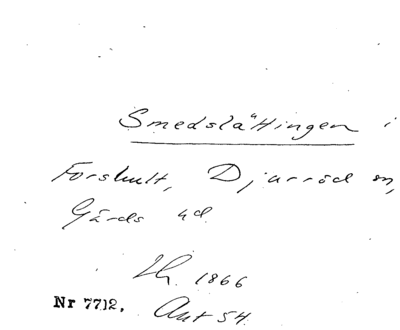 Smedslättingen i
Forshult, Djurröd sn,
Gärds hd.
1866
Nr 7712. Ant 54.